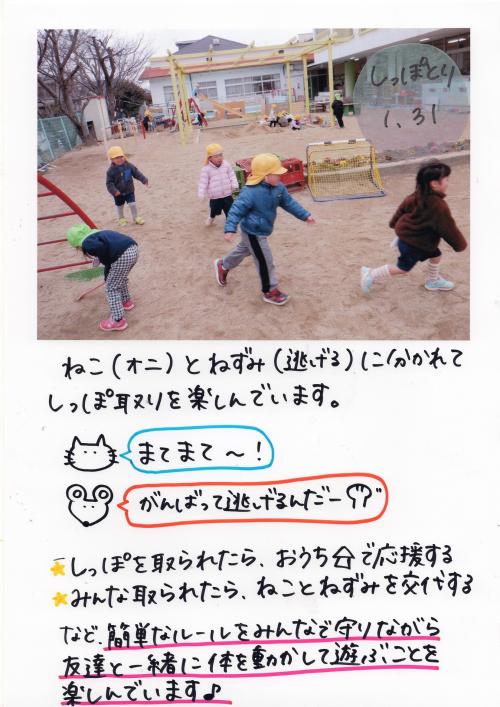 しっぽとり
1、31
ねこ(オニ)とねずみ(逃げる)に分かれて
しっぽ取りを楽しんでいます。
まてまて～!
がんばって逃げるんだー
☆しっぽを取られたら、おうち分で応援する
☆みんな取られたら、ねことねずみを交代する
など、簡単なルールをみんなで守りながら
友達と一緒に体を動かして遊ぶことを
楽しんでいます♪